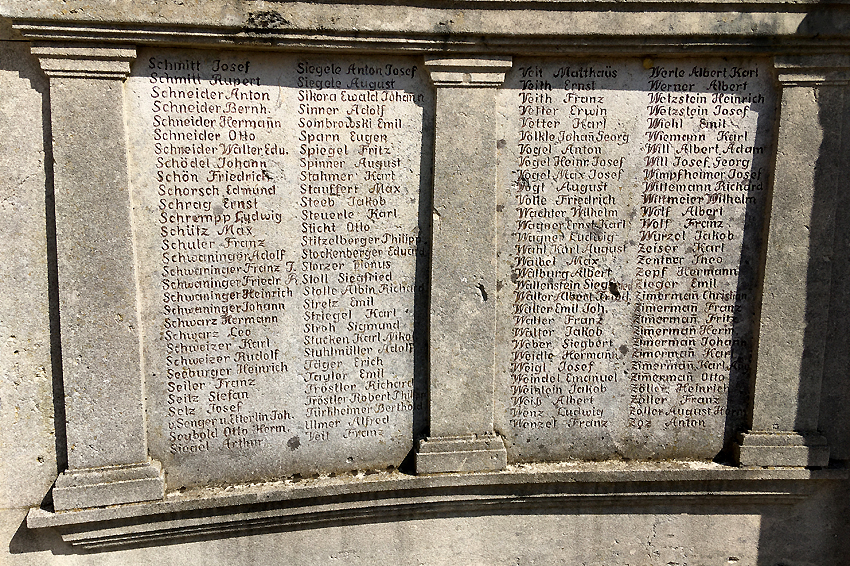 Schmitt Josef
Schmitt Rupert
Schneider Anton
Schneider Bernh.
Schneider Hermann
Schneider Otto
Schneider Walter Edu.
Schödel Johann
Schön Friedrich
Schorsch Edmund
Schrag Ernst
Schrempp Ludwig
Schütz Max
Schuler Franz
Schwaninger Adolf
Schwaninger Franz J.
Schwaninger Friedr. K.
Schwaninger Heinrich
Schwaninger Johann
Schwarz Hermann
Schwarz Leo
Schweizer Karl
Schweizer Rudolf
Seeburger Heinrich
Seiler Franz
Seitz Stefan
Selz Josef
v. Senger u. Etterlin Joh.
Seubold Otto Herm.
Siegel Arthur
Siegele Anton Josef
Siegele August
Sikora Ewald Johann
Sinner Adolf
Sombrowski Emil
Sparn Eugen
Spiegel Fritz
Spinner August
Stahmer Karl
Stauffert Max
Steeb Jakob
Steuerle Karl
Sticht Otto
Stitzelberger Philipp
Stockenberger Eduard
Störzer
Stoll Siegfried
Stolle Albin Richard
Streiz Emil
Striegel Karl
Stroh Sigmund
Stucken Karl Niko
Stuhlmüller Adolf
Täger Erich
Taylor Emil
Tröstler Richard
Tröstler Robert Philip
Türkheimer Berthold
Ullmer Alfred
Veil Franz
Veit Matthäus
Veith Ernst
Veith Franz
Vetter Erwin
Vetter Karl
Völkle Johan Georg
Vogel Anton
Vogel Heinr. Josef
Vogel Max Josef
Vogt August
Volle Friedrich
Wachter Wilhelm
Wagner Ernst Karl
Wagner Ludwig
Wahl Karl August
Waibel Max
Walburg Albert
Wallenstein Siegb
Walter Albert Fried.
Walter Emil Joh.
Walter Franz
Walter Jakob
Weber Siegbert
Weidle Hermann
Weigl Josef
Weindel Emanuel
Weinlein Jakob
Weiß Albert
Wenz Ludwig
Wenzel Franz
Werle Albert Karl
Werner Albert
Wetzstein Heinrich
Wetzstein Josef
Wiehl Emil
Wiemann Karl
Will Albert Adam
Will Josef Georg
Wimpfheimer Josef
Wittemann Richard
Wittmeier Wilhelm
Wolf Albert
Wolf Franz
Würzel Jakob
Zeiser Karl
Zentner Theo
Zopf Hermann
Zieger Emil
Zimerman Christian
Zimermañ Franz
Zimermañ Fritz
Zimermañ Herm.
Zimermañ Johann
Zimermañ Karl
Zimermañ Karl
Zimermañ Otto
Zöller Heinrich
Zöller Franz
Zöller August Herm.
Zoz Anton